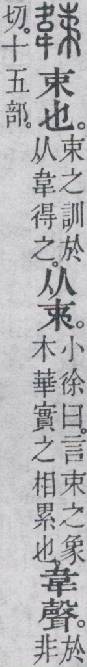 束也。束之訓於
从韋得之。
从
小徐曰。言束之象
木華實之相累也
韋聲。於非
切。十五部。